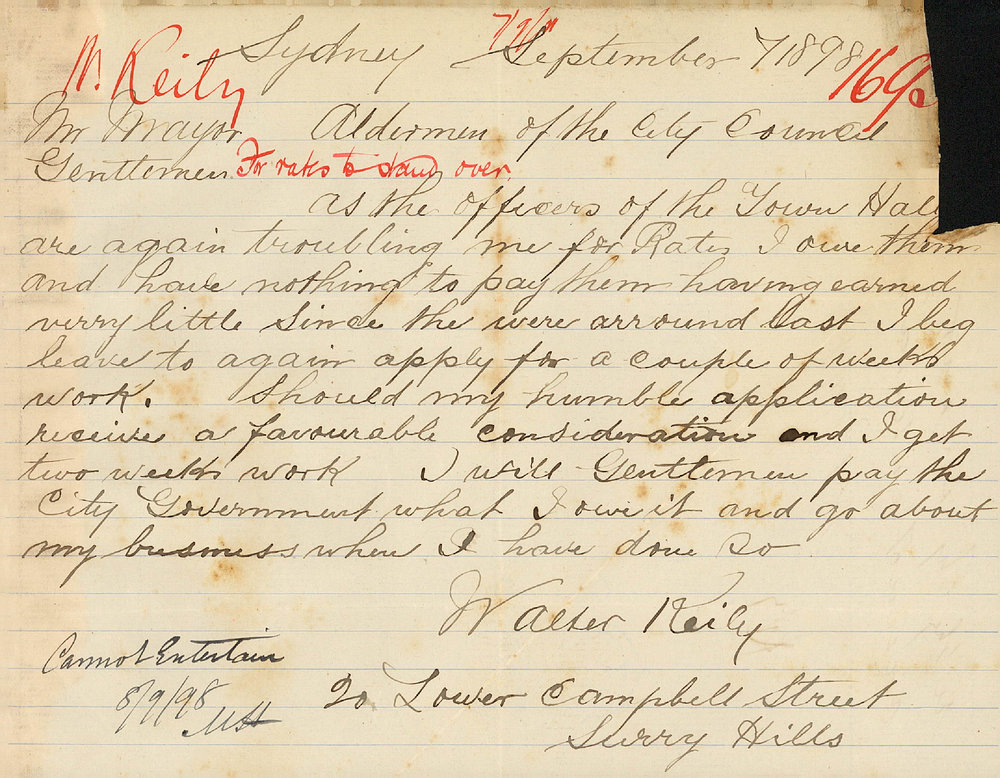 W. Keily
Sydney September 7 1898
Mr Mayor Aldermen of the City Council
Gentlemen For rates to stand over
as the officers of the Town Hall
are again troubling me for Rates I owe them
and have nothing to pay them having earned
verry little Since the were arround last I beg
leave to again apply for a couple of weeks
work. Should my humble application
receive a favourable consideration and I get
two weeks work I will Gentlemen pay the
City Government what I owe it and go about
my business when I have done so
Walter Keily
20 Lower Campbell Street
Surry Hills
Cannot Entertain
8/9/98